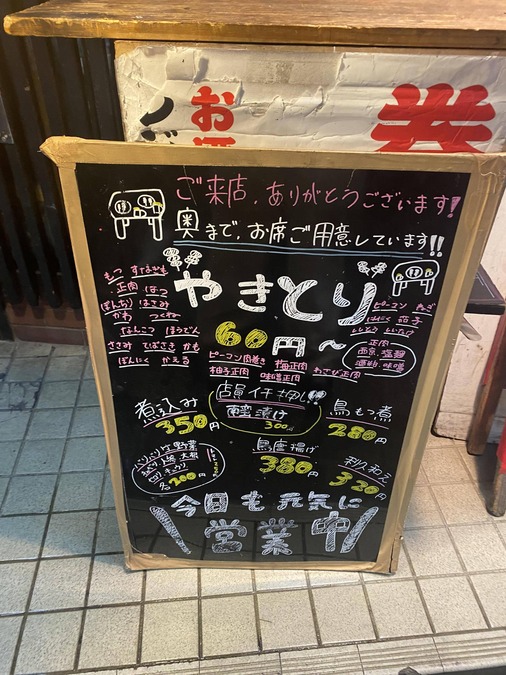 ご来店、ありがとうございます!
奥まで、お席ご用意しています!!
やきとり
60円~
もつ すなぎも
正肉 はつ
ぼんぢり はさみ
かわ つくね
なんこつ ほうでん
ささみ てばさき かも
にんにく かえる
ピーマン ねぎ
にんにく 茄子
ししとう しいたけ
正肉
西京、塩麹
酒粕、味噌
ピーマン肉巻き 梅正肉
柚子正肉 味噌正肉 わさび正肉
店員イチオシ!!
漬け
300
煮込み
350円
鳥もつ煮
280円
鳥唐揚げ
380円
320円
パリパリ 野菜
大根
キュウリ
各200円
今日も元気に
営業中
お酒